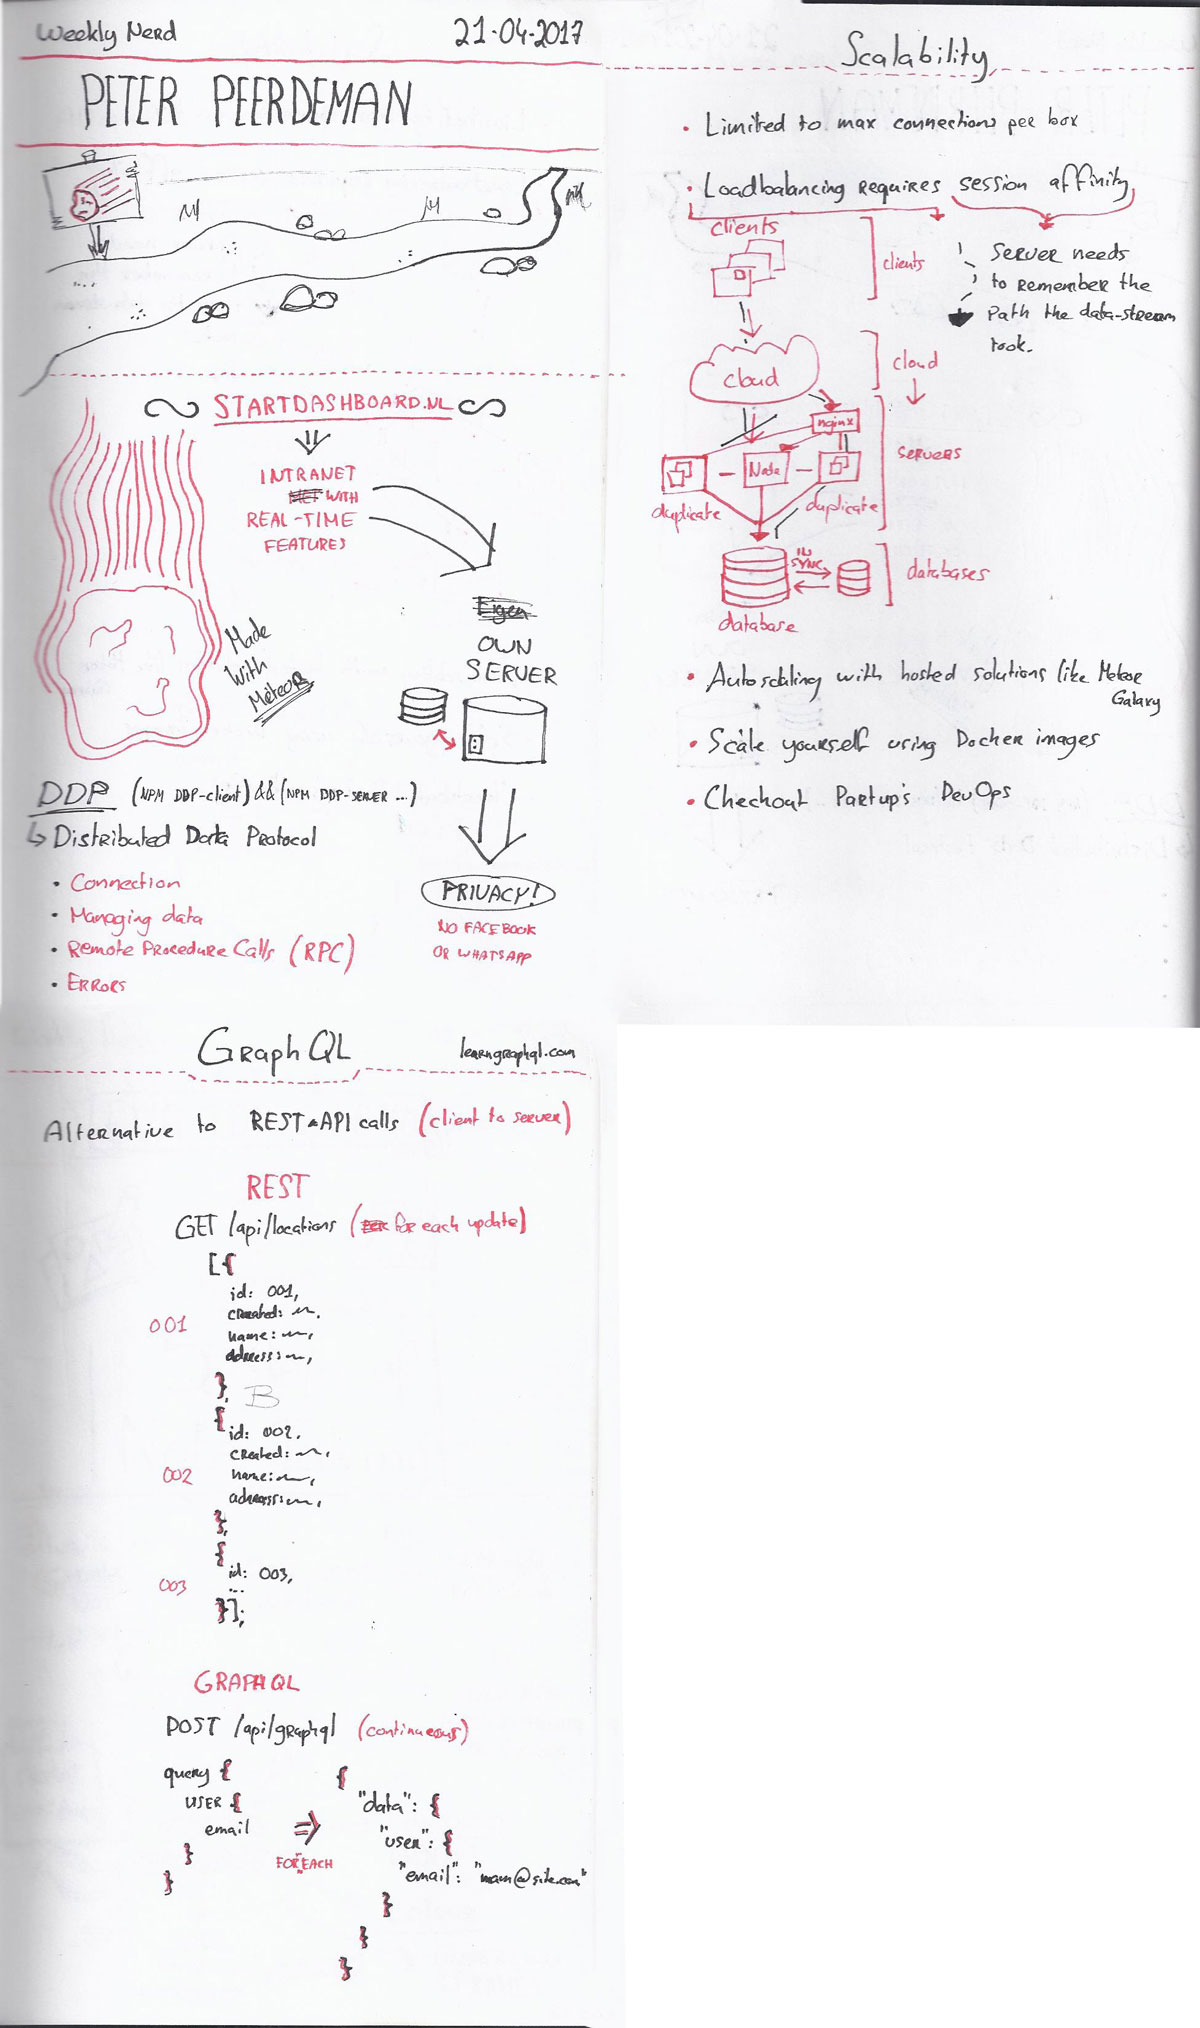 Weekly Nerd
21-04-2017
PETER PEERDEMAN
STARTDASHBOARD.NL
INTRANET
MET WITH
REAL-TIME
FEATURES
Made
With
Meteor
Eigen
OWN
SERVER
DDP (NPM DDP-client) && (NPM DDP-server ...)
↳ Distributed Data Protocol
• Connection
• Managing data
• Remote Procedure Calls (RPC)
• Errors
PRIVACY!
NO FACEBOOK
OR WHATSAPP
Scalability
• Limited to max connections per box
• Loadbalancing requires session affinity
Server needs
to remember the
Path the data-stream
took.
clients
clients
cloud
cloud
nginx
Node
servers
duplicate
duplicate
IN
SYNC
databases
database
• Autoscaling with hosted solutions like Meteor
Galaxy
• Scale yourself using Docker images
• Checkout Partup's DevOps
GraphQL
learngraphql.com
Alternative to REST API calls (client to server)
REST
GET /api/locations (for each update)
[{
id: 001,
created: ~,
001
name: ~,
address: ~,
},
B
{
id: 002,
created: ~,
002
name: ~,
address: ~,
},
{
id: 003,
003
...
}];
GRAPHQL
POST /api/graphql (continuous)
query {
USER {
email
}
}
⇒
FOR EACH
{
"data": {
"user": {
"email": "mam@site.com"
}
}
}